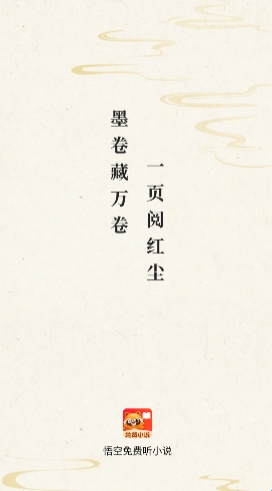 一页阅红尘
墨卷藏万卷
免费小说
悟空免费听小说